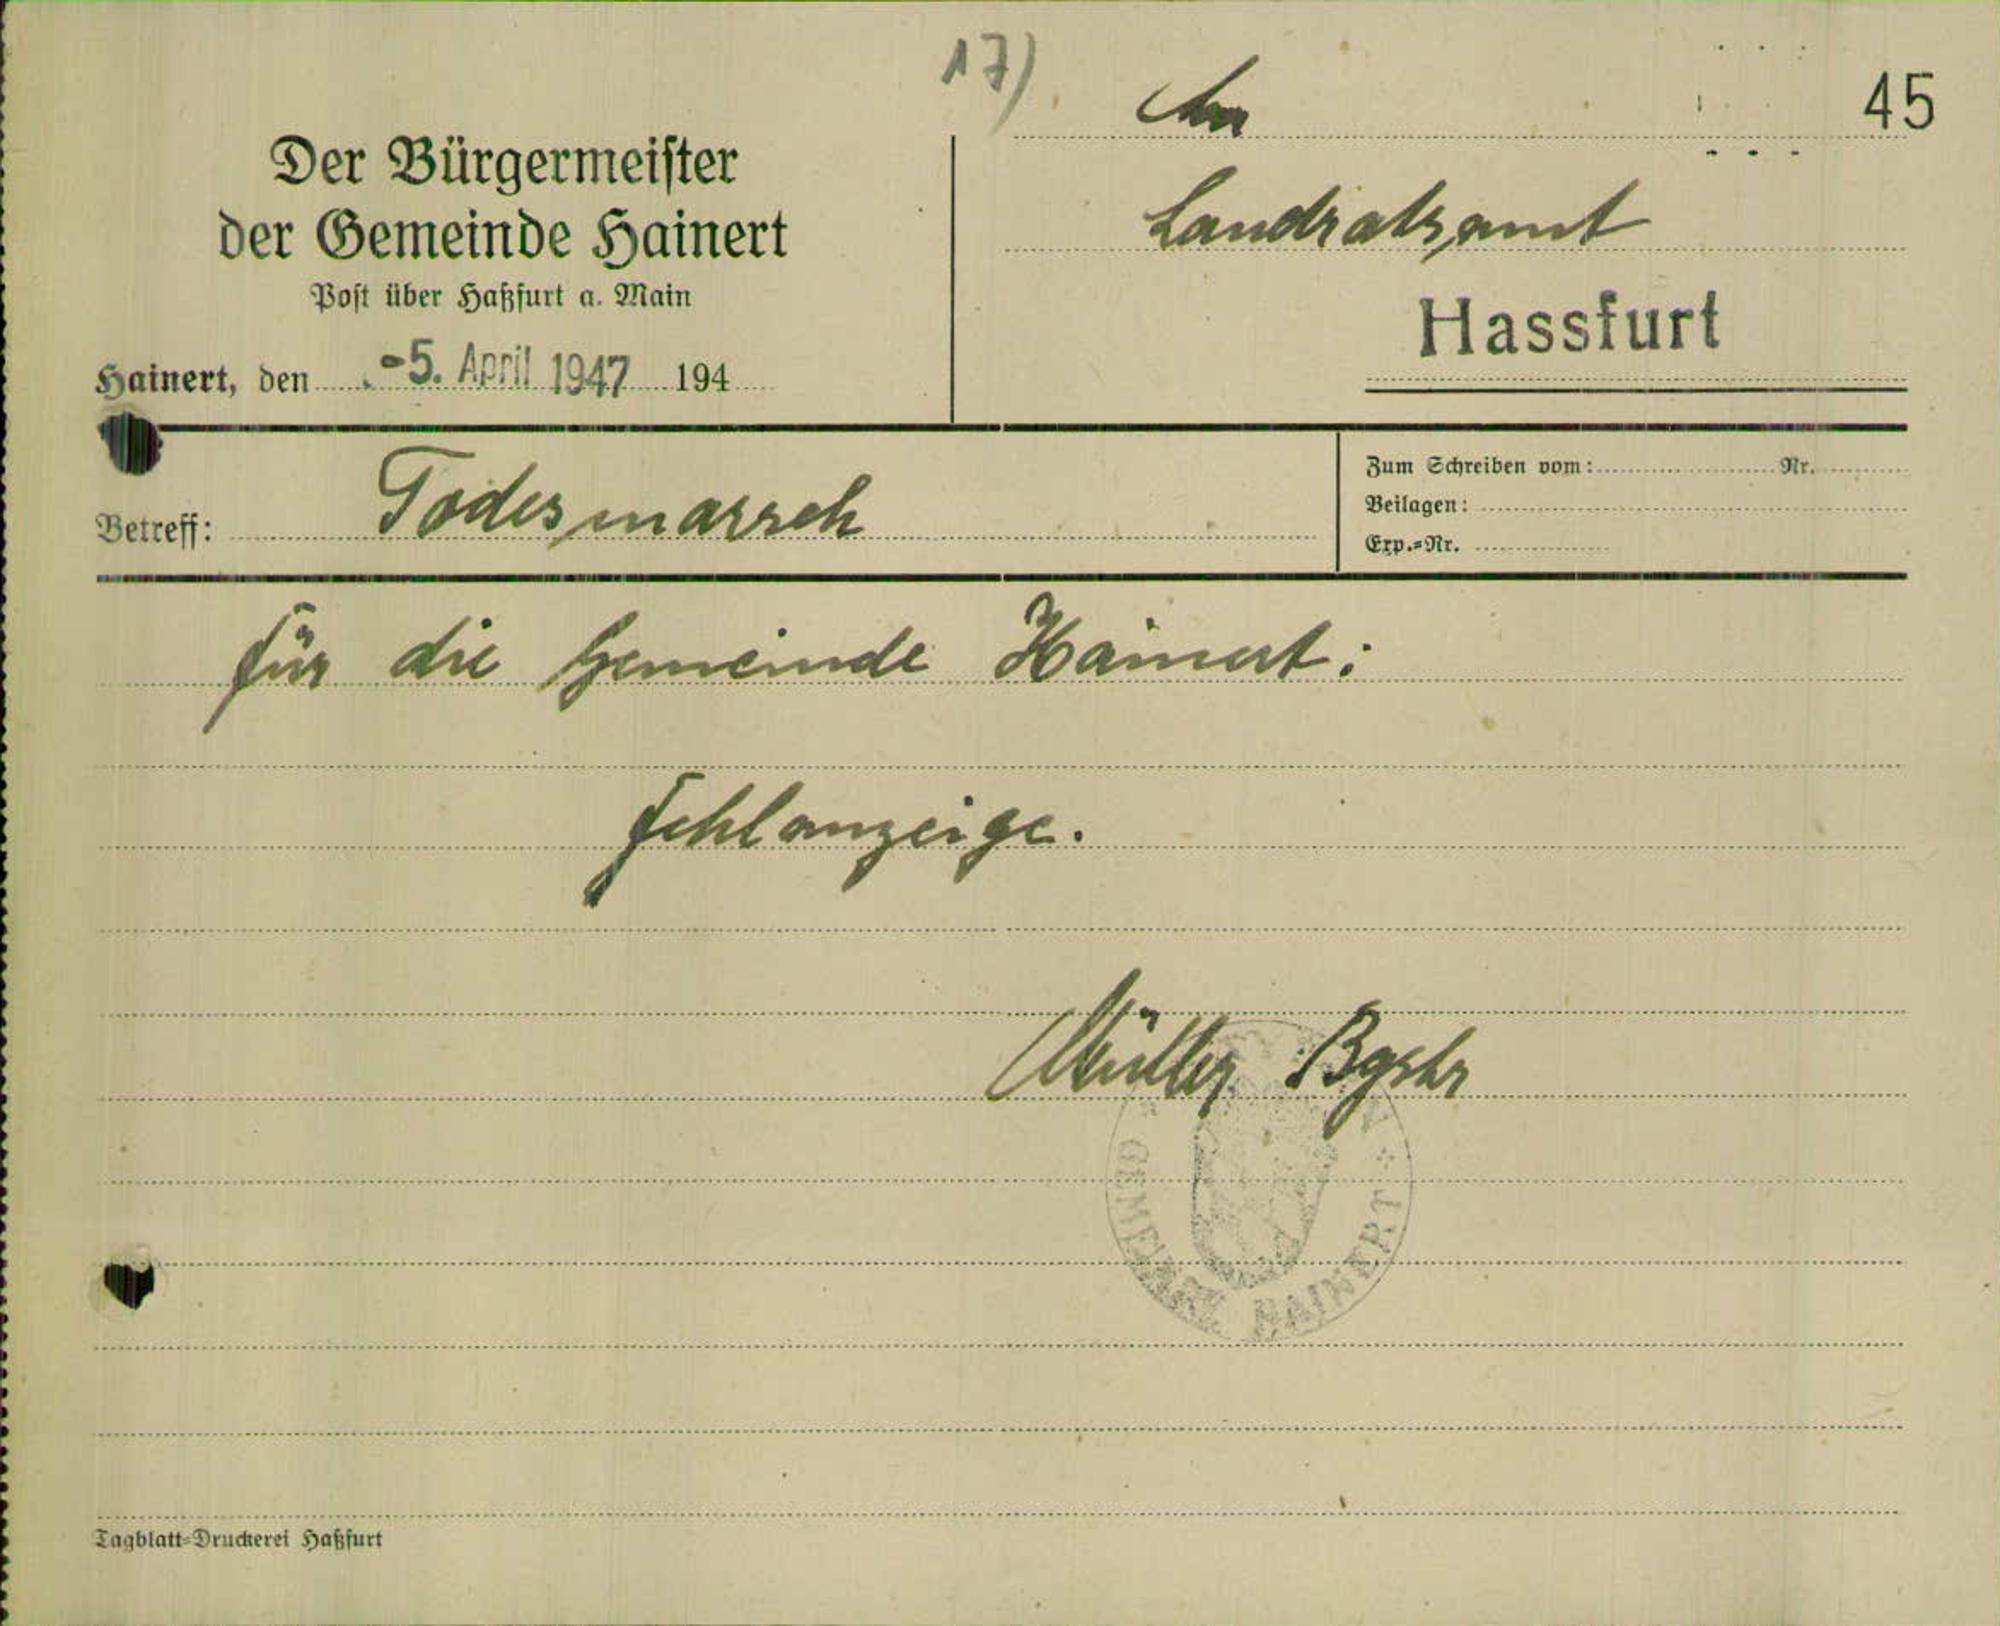 17)
45
Der Bürgermeister
der Gemeinde Hainert
Post über Haßfurt a. Main
Hainert, den -5. April 1947 194
An
Landratsamt
Hassfurt
Betreff: Todesmarsch
Zum Schreiben vom: Nr.
Beilagen:
Exp.=Nr.
für die Gemeinde Hainert:
Fehlanzeige.
Müller Bgstr
GEMEINDE HAINERT
Tagblatt=Druckerei Haßfurt